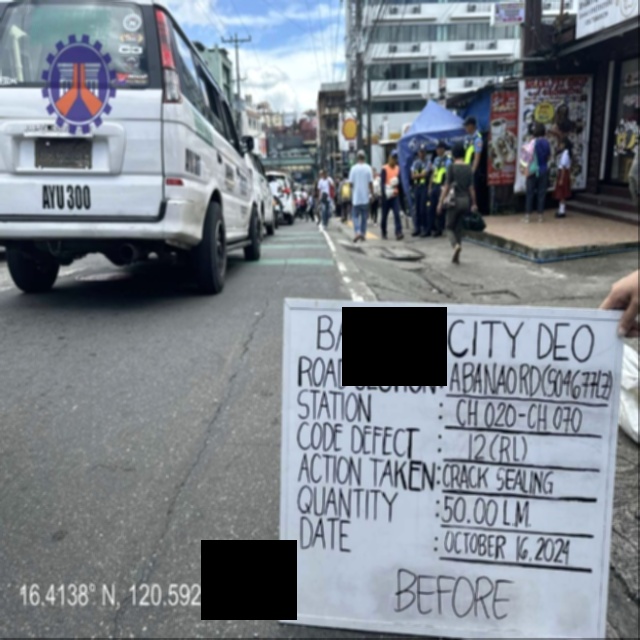 AYU 300
CITY DEO
ABANAO RD(S04677LZ)
STATION : CH 020-CH 070
CODE DEFECT : 12(RL)
ACTION TAKEN: CRACK SEALING
QUANTITY : 50.00 L.M.
DATE : OCTOBER 16, 2024
BEFORE
16.4138° N, 120.592